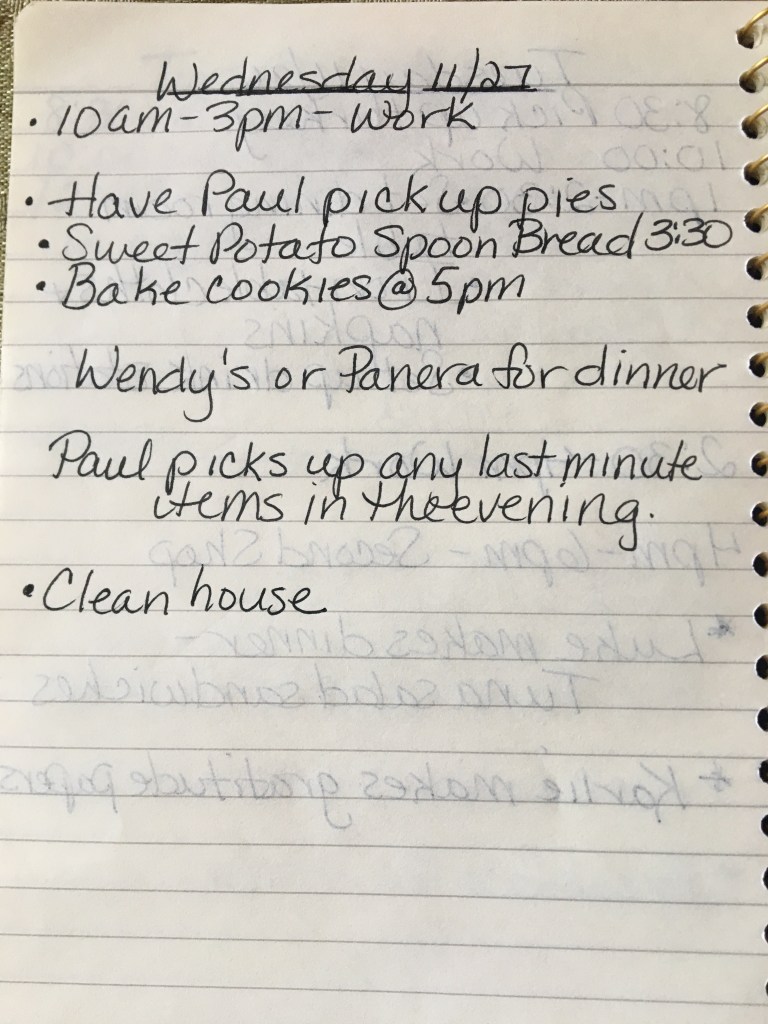 Wednesday 11/27
• 10am-3pm-Work
• Have Paul pick up pies
• Sweet Potato Spoon Bread 3:30
• Bake cookies @ 5pm
Wendy's or Panera for dinner
Paul picks up any last minute
items in the evening.
• Clean house